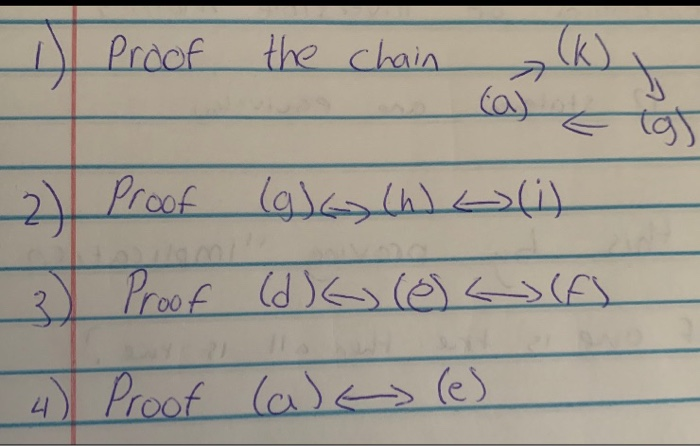 1) Proof the chain (a) ⇒ (k) ⇒ (g) ⇐
2) Proof (g) ⟷ (h) ⟷ (i)
3) Proof (d) ⟷ (e) ⟷ (f)
4) Proof (a) ⟷ (e)